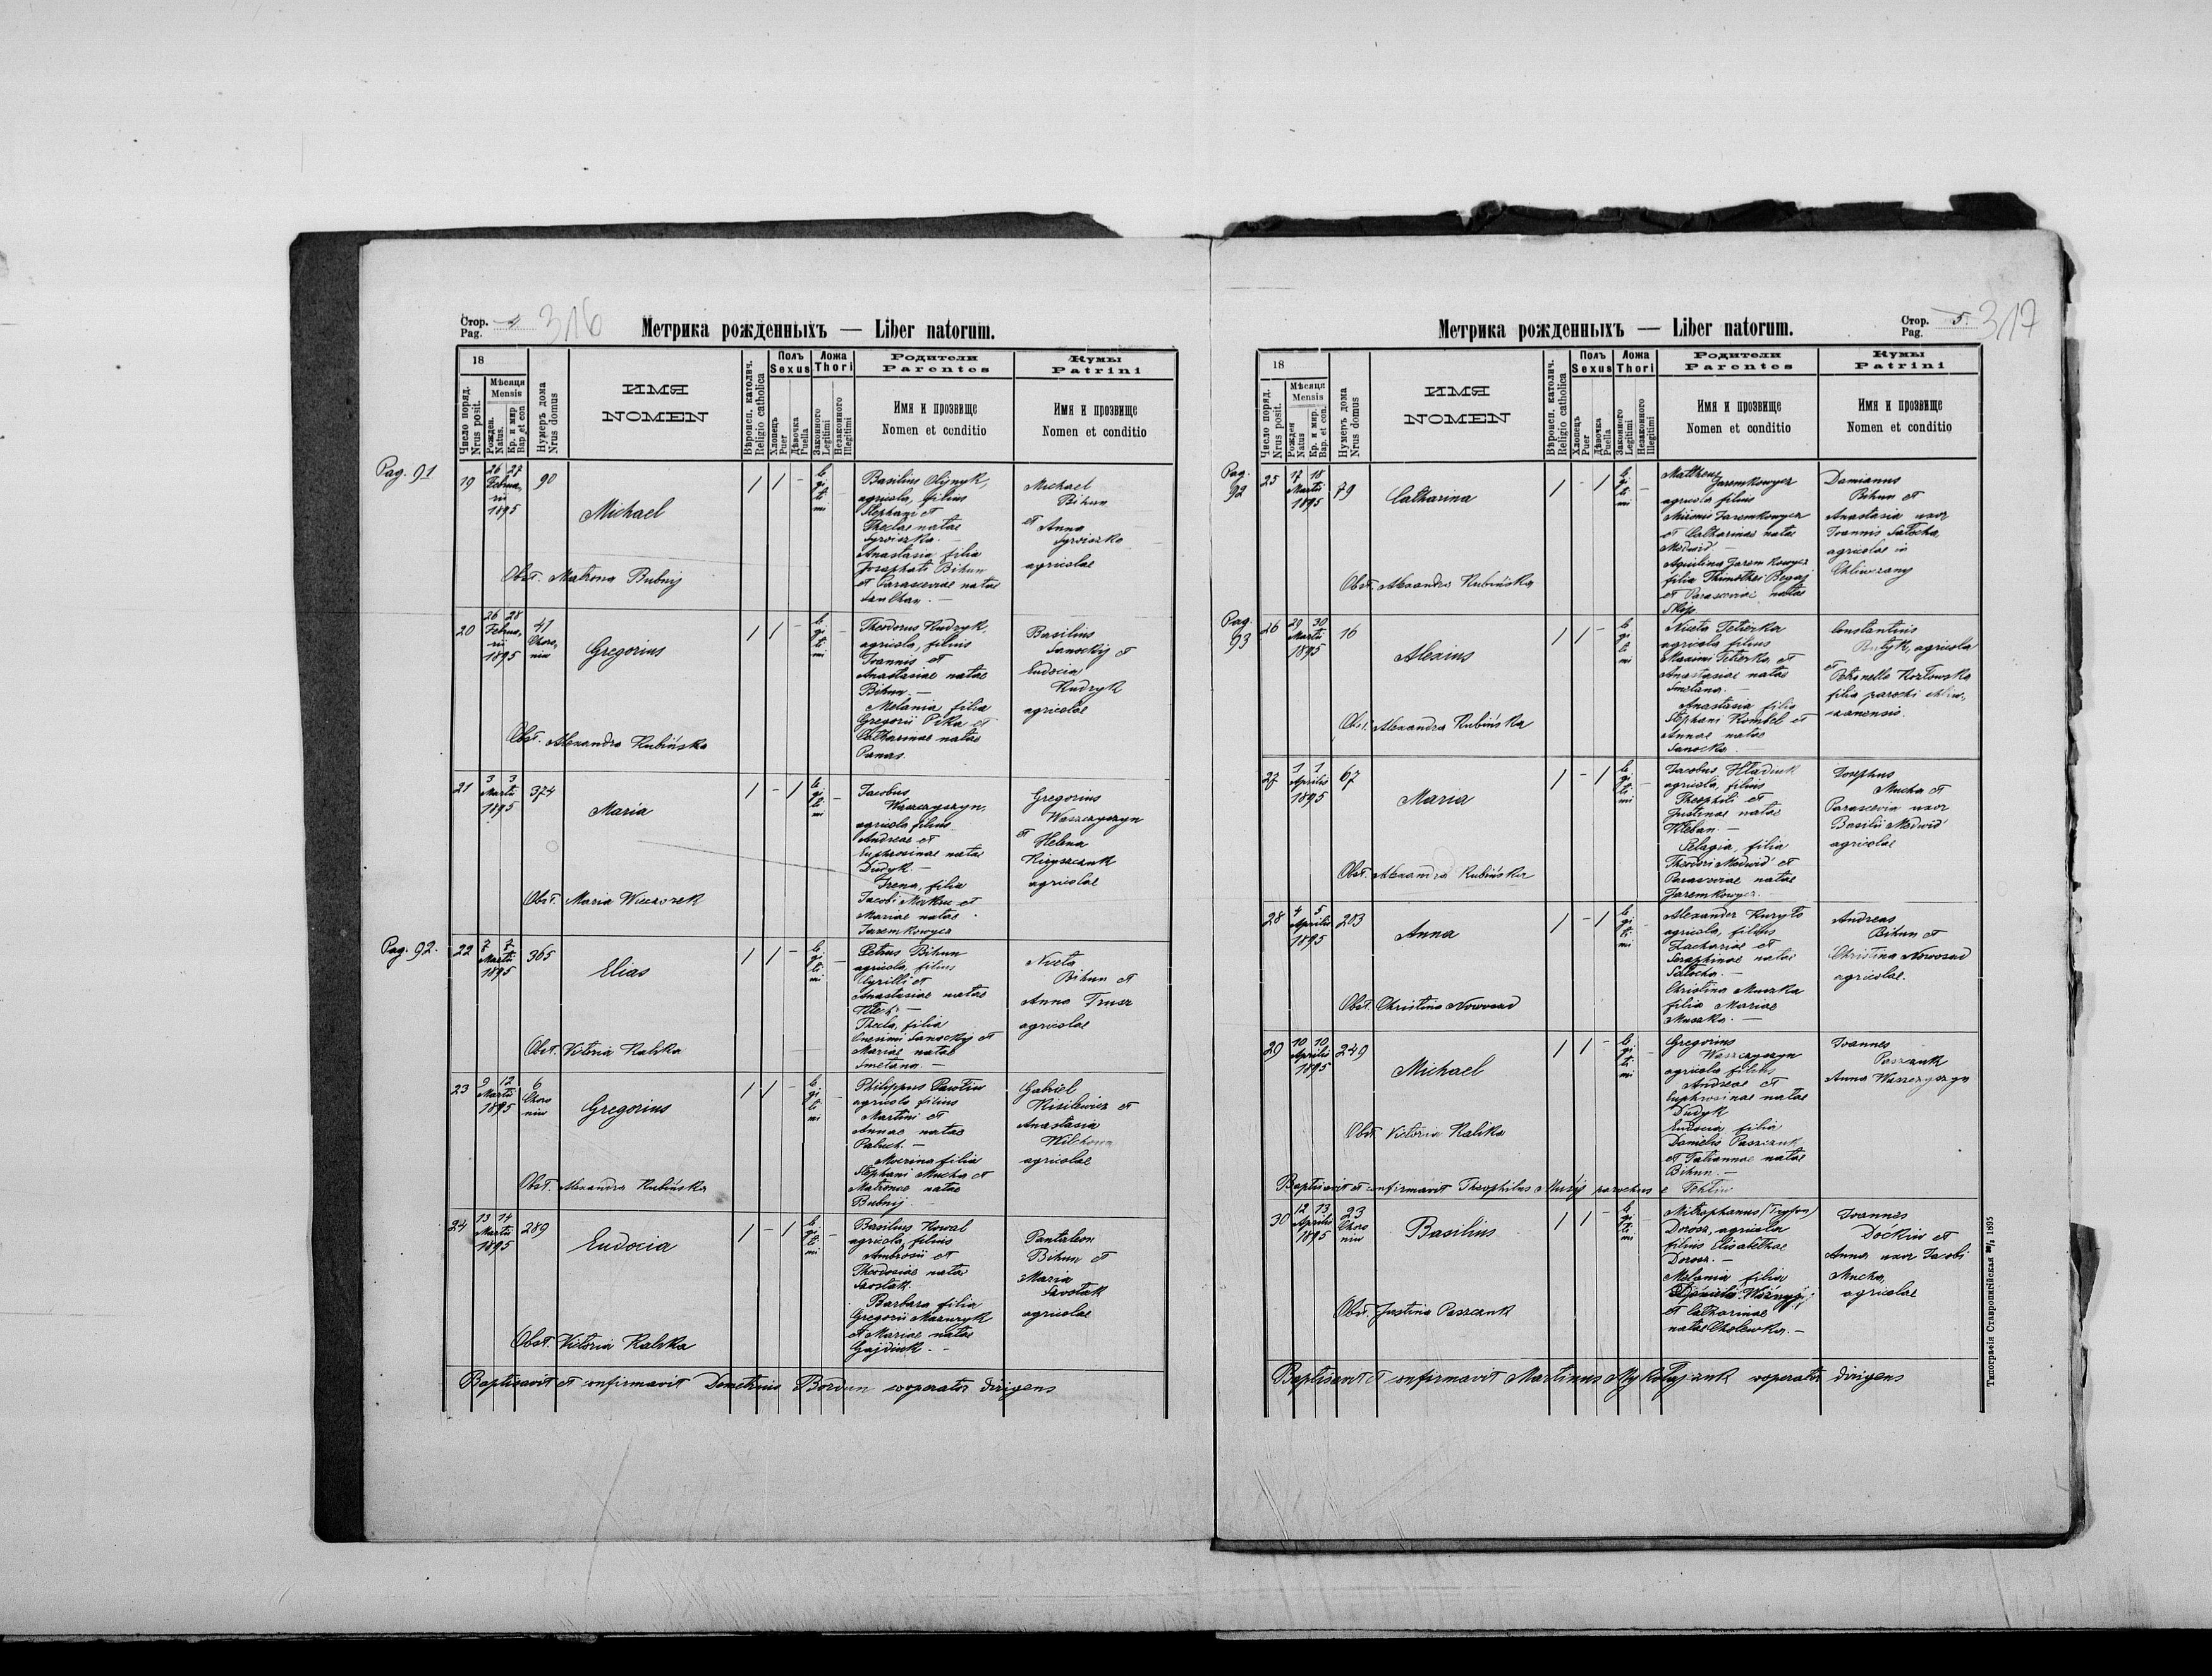 Стор. 4 316
Pag.
Метрика рожденныхъ — Liber natorum.
18
Число поряд. Nrus posit.
Мѣсяця Mensis
Рожден. Natus
Кр. и мир Bap. et con
Нумеръ дома Nrus domus
ИМЯ
NOMEN
Вѣроисп. католич. Religio catholica
Полъ
Sexus
Хлопець Puer
Дѣвочка Puella
Ложа
Thori
Законного Legitimi
Незаконного Illegitimi
Родители
Parentes
Имя и прозвище
Nomen et conditio
Кумы
Patrini
Имя и прозвище
Nomen et conditio
Pag. 91
19
26 27
Februa-
rii
1895
90
Michael
Obst. Matrona Bubnij
1 1 -
le
gi
ti
mi
-
Basilius Olijnyk,
agricola, filius
Stephani et
Theclae natae
Syroiszka. —
Anastasia filia
Josaphati Bihun
et Parasceviae natae
Michael
Bihun
et Anna
Syroiszka
agricolae
20
26 28
Februa-
rii
1895
41
Choro-
niu
Gregorius
Obst. Alexandra Kubińska
1 1 -
le
gi
ti
mi
-
Theodorus Kudryk,
agricola, filius
Joannis et
Anastasiae natae
Bihun. —
Melania filia
Gregorii Pika et
Catharinae natae
Panas.
Basilius
Sanockij et
Eudocia
Kudryk
agricolae
21
3 3
Martii
1895
374
Maria
Obst. Maria Wieczorek
1 - 1
le
gi
ti
mi
-
Jacobus
Waszczyszyn,
agricola filius
Andreae et
Euphrosinae natae
Dudyk. —
Irena, filia
Jacobi Makou et
Mariae natae
Jaremkowycz
Gregorius
Waszczyszyn
et Helena
agricolae
Pag. 92.
22
7 7
Martii
1895
365
Elias
Obst. Victoria Kalska
1 1 -
le
gi
ti
mi
-
Petrus Bihun
agricola, filius
Cyrilli et
Anastasiae natae
Thecla, filia
Onesimi Sanockij et
Mariae natae
Smetana. —
Niceta
Bihun et
Anna Trusz
agricolae
23
9 12
Martii
1895
6
Choro
niu
Gregorius
Obst. Alexandra Kubińska
1 1 -
le
gi
ti
mi
-
Philippus Pawliw
agricola filius
Martini et
Annae natae
Paluch. —
Macrina filia
Stephani Mucha et
Matronae natae
Bubnij
Gabriel
Kisilewicz et
Anastasia
agricolae
24
13 14
Martii
1895
289
Eudocia
Obst. Victoria Kalska
1 - 1
le
gi
ti
mi
-
Basilius Kowal
agricola, filius
Ambrosii et
Theodosiae natae
Barbara filia
Gregorii Mazuryk
et Mariae natae
Gajdiuk. —
Pantaleon
Bihun et
Maria
agricolae
Baptisavit et confirmavit Demetrius Bordun cooperator dirigens
Стор. 5. 317
Pag.
Метрика рожденныхъ — Liber natorum.
18
Число поряд. Nrus posit.
Мѣсяця Mensis
Рожден Natus
Кр. и мир. Bap. et con.
Нумеръ дома Nrus domus
ИМЯ
NOMEN
Вѣроисп. католич. Religio catholica
Полъ
Sexus
Хлопець Puer
Дѣвочка Puella
Ложа
Thori
Законного Legitimi
Незаконного Illegitimi
Родители
Parentes
Имя и прозвище
Nomen et conditio
Кумы
Patrini
Имя и прозвище
Nomen et conditio
Pag.
92
25
17 18
Martii
1895
79
Catharina
Obst. Alexandra Kubińska
1 - 1
le
gi
ti
mi
-
Mattheus
Jaremkowycz
agricola filius
Mironis Jaremkowycz
et Catharinae natae
Medwid. —
Aquilina Jaremkowycz
filia Thimothei Begaj
et Parasceviae natae
Skop.
Damianus
Bihun et
Anastasia uxor
Joannis Satocha,
agricolae in
Chliwczany
Pag.
93
26
29 30
Martii
1895
16
Alexius
Obst. Alexandra Kubińska
1 1 -
le
gi
ti
mi
-
Niceta Teterka
agricola filius
Maximi Teterka, et
Anastasiae natae
Smetana. —
Anastasia filia
Stephani Kombel et
Annae natae
Sanocka. —
Constantius
agricola
et
Petronella Kozłowska
filia parochi Chliw-
czanensis.
27
1 1
Aprilis
1895
67
Maria
Obst. Alexandra Kubińska
1 - 1
le
gi
ti
mi
-
Jacobus Hładiuk
agricola, filius
Theophili et
Justinae natae
Kleban. —
Pelagia, filia
Theodori Medwid et
Parasceviae natae
Jaremkowycz.
Josephus
Mucha et
Parascevia uxor
Basilii Medwid
agricolae
28
4 5
Aprilis
1895
203
Anna
Obst. Christina Nowosad
1 - 1
le
gi
ti
mi
Alexander Kuryło
agricola, filius
Zachariae et
Seraphinae natae
Satocha. —
Christina Muszka
filia Mariae
Muszka. —
Andreas
Bihun et
Christina Nowosad
agricolae.
29
10 10
Aprilis
1895
249
Michael
Obst. Victoria Kalska
1 1 -
le
gi
ti
mi
-
Gregorius
Waszczyszyn
agricola filius
Andreae et
Euphrosinae natae
Dudyk
Eudocia filia
Danielis Paszczuk
et Tatiannae natae
Bihun. —
Joannes
Paszczuk
Anna Waszczyszyn
Baptisavit et confirmavit Theophilus parochus e
30
12 13
Aprilis
1895
23
Choro
niu
Basilius
Obst. Justina Paszczuk
1 1 -
le
gi
ti
mi
-
Mitrophanus (Tryfon)
Dorosz, agricola
filius Elisabethae
Dorosz. —
Melania filia
Danielis
et Catharinae
natae Cholewka. —
Joannes
Dóckiw et
Anna uxor Jacobi
Mucha,
agricolae
Baptisavit et confirmavit Martinus Mykołajczuk cooperator dirigens
Типографія Ставропигійская 1895